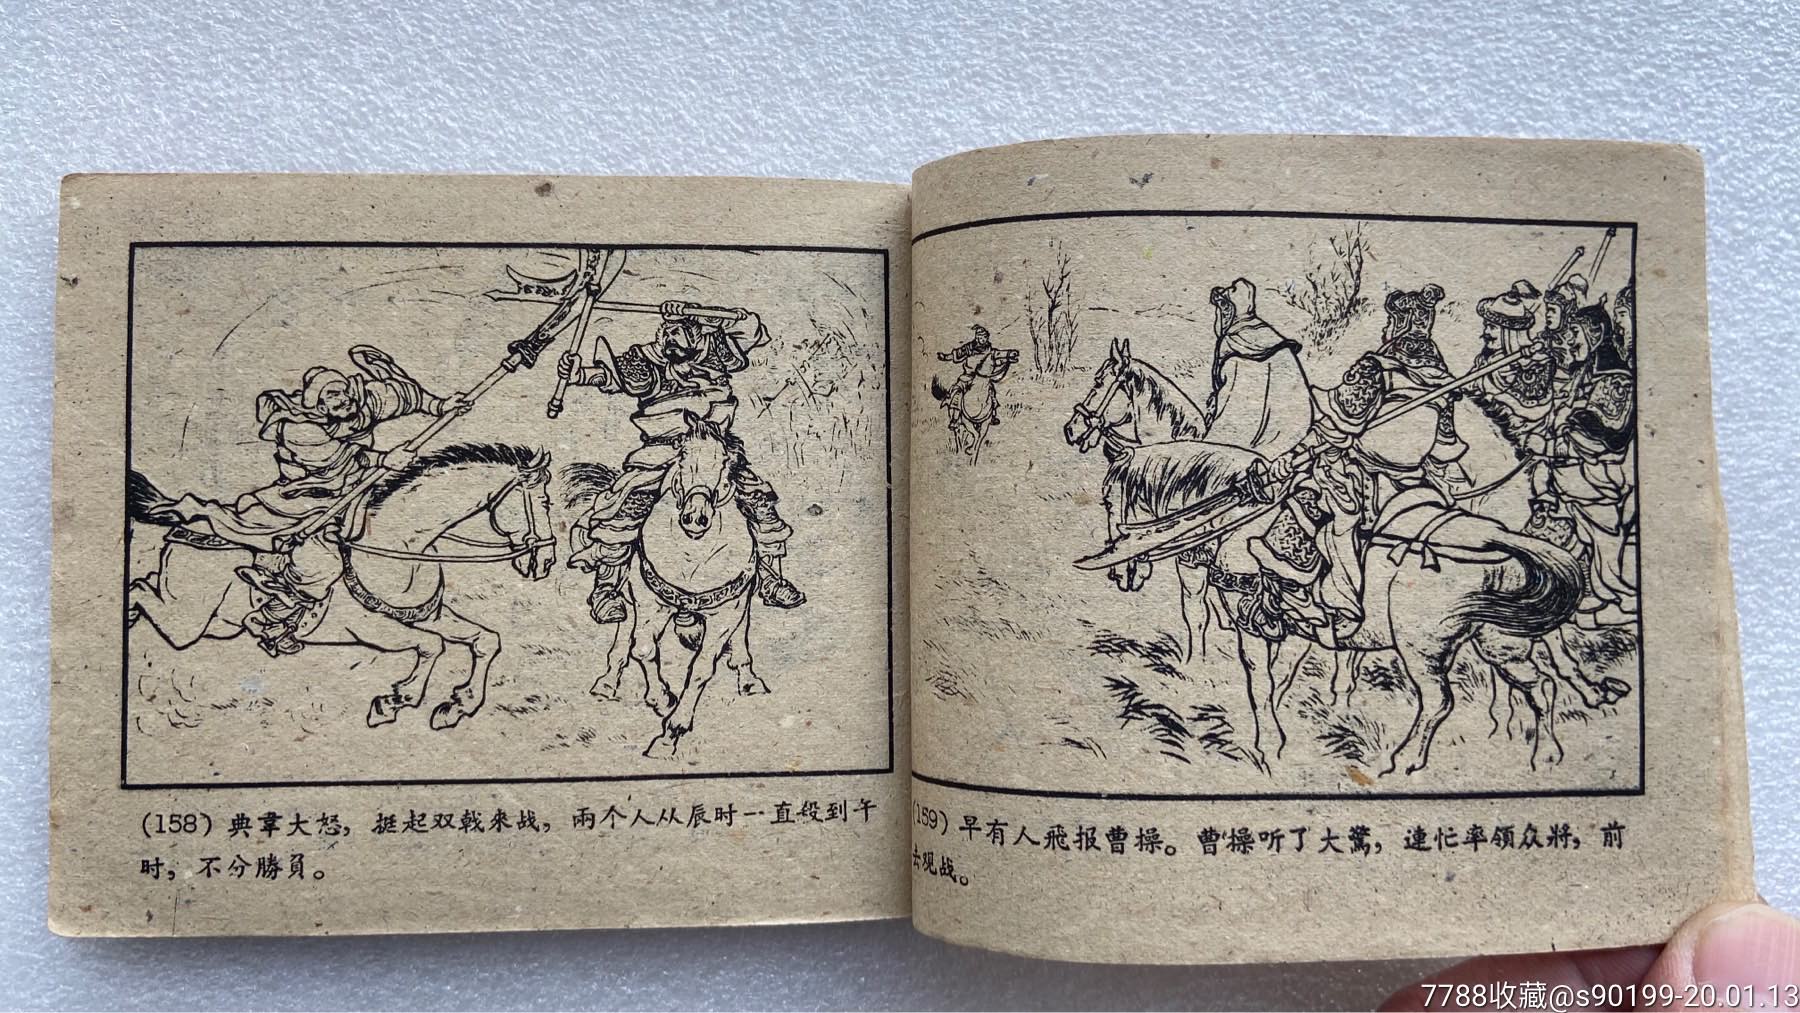 (158) 典韋大怒，挺起双戟來战，兩个人从辰时一直殺到午
时，不分勝負。
(159) 早有人飛报曹操。曹操听了大驚，連忙率領众將，前
去观战。
7788收藏@s90199-20.01.13